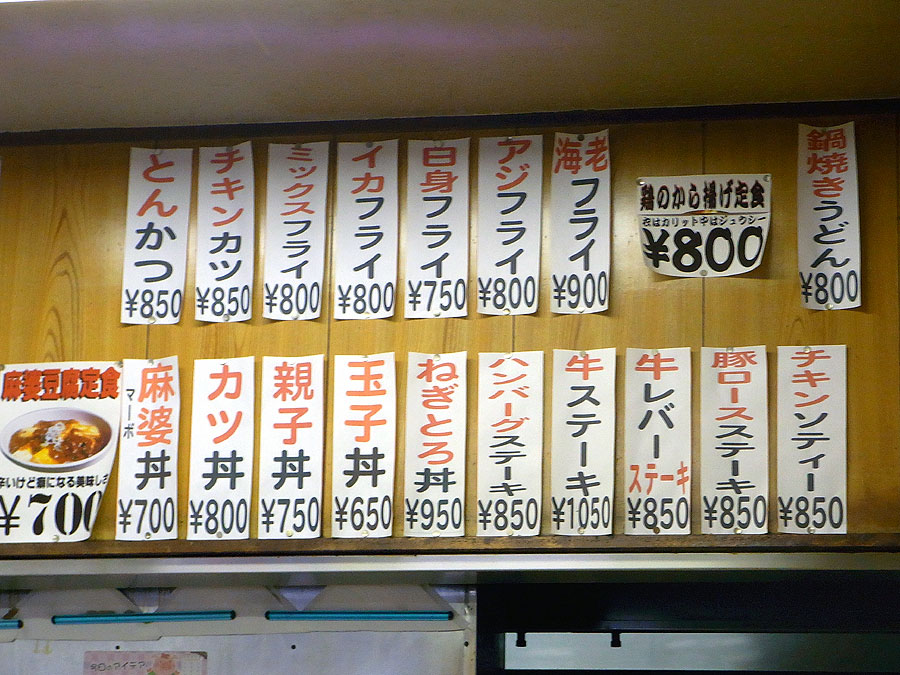 とんかつ
¥850
チキンカツ
¥850
ミックスフライ
¥800
イカフライ
¥800
白身フライ
¥750
アジフライ
¥800
海老フライ
¥900
鶏のから揚げ定食
衣はカリット中はジュウシー
¥800
鍋焼きうどん
¥800
麻婆豆腐定食
辛いけど癖になる美味しさ
¥700
麻婆丼
マーボ
¥700
カツ丼
¥800
親子丼
¥750
玉子丼
¥650
ねぎとろ丼
¥950
ハンバーグステーキ
¥850
牛ステーキ
¥1050
牛レバーステーキ
¥850
豚ロースステーキ
¥850
チキンソティー
¥850
今日のアイデア